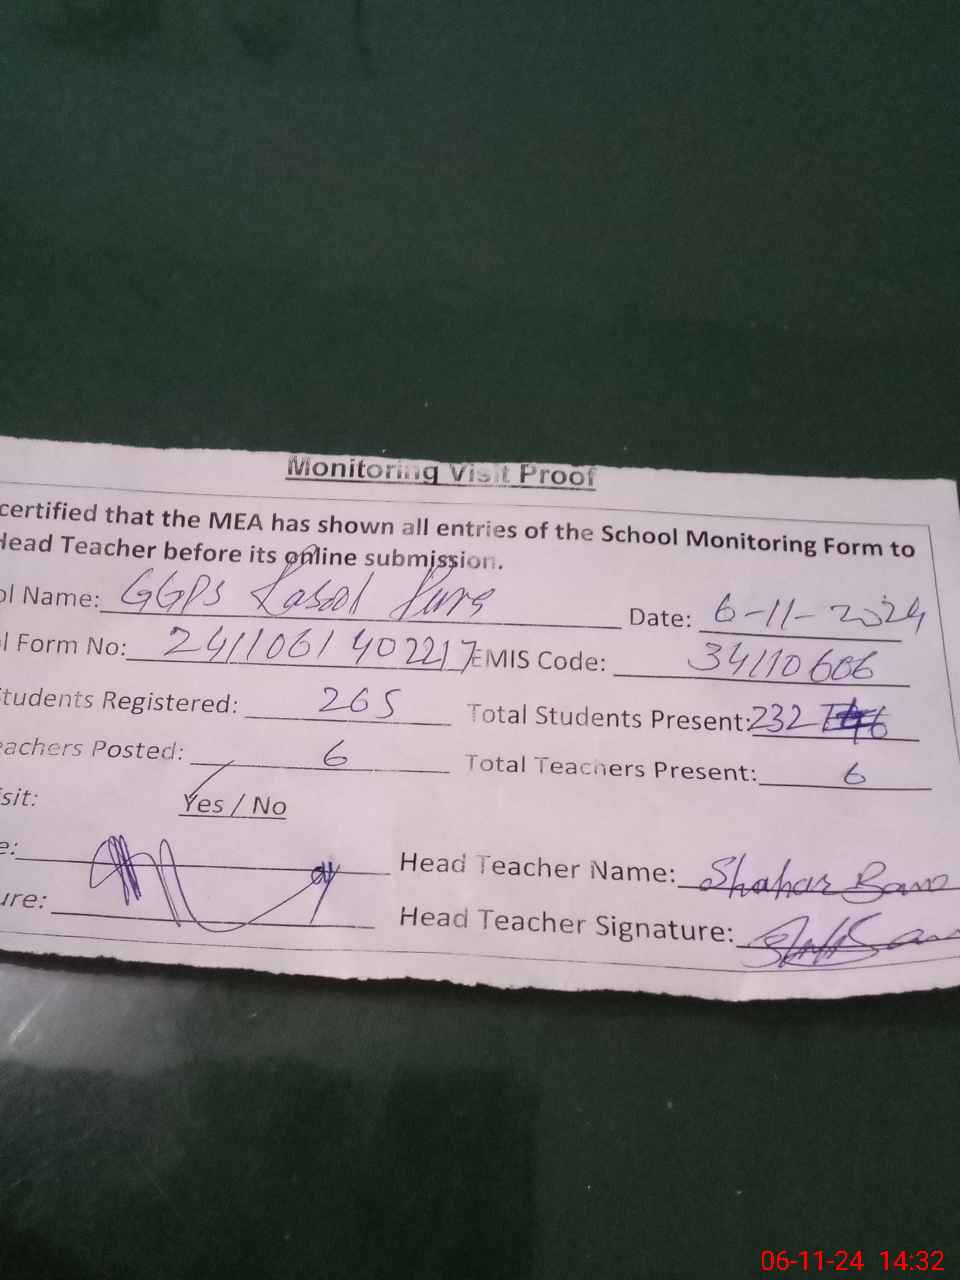 Monitoring Visit Proof
certified that the MEA has shown all entries of the School Monitoring Form to
Head Teacher before its online submission.
ol Name: GGPS Rasool Pura Date: 6-11-2024
l Form No: 2411061402217 EMIS Code: 34110606
tudents Registered: 265 Total Students Present: 232
eachers Posted: 6 Total Teachers Present: 6
isit: Yes / No
e: Head Teacher Name: Shahar Bano
ure: Head Teacher Signature:
06-11-24 14:32